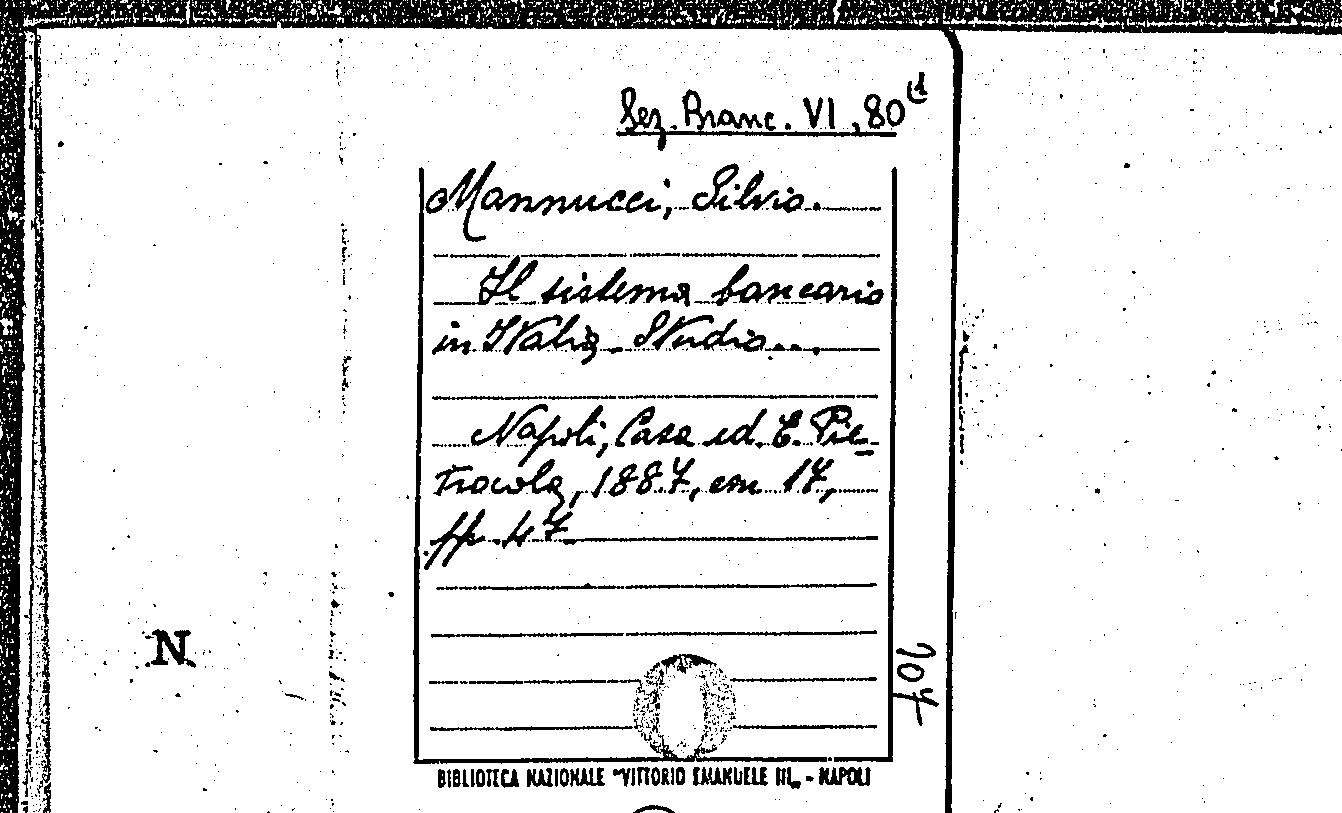 Sez. Branc. VI, 80(1
Mannucci, Silvio.
Il sistema bancario
in Italia. Studio...
Napoli, Casa ed. E. Pie-
trocola, 1887, cm 17,
pp. 47
N
207
BIBLIOTECA NAZIONALE "VITTORIO EMANUELE III„ - NAPOLI